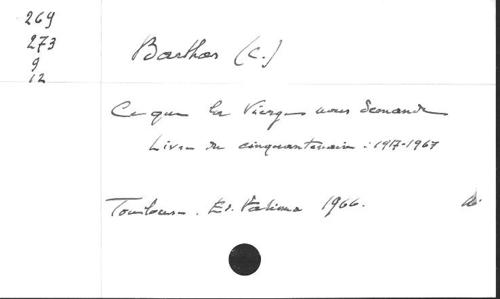 269
273
9
12
Barthas (C.)
Ce que la Vierge nous demande
Livre du cinquantenaire : 1917-1967
Toulouse. Ed. Fatima 1966.